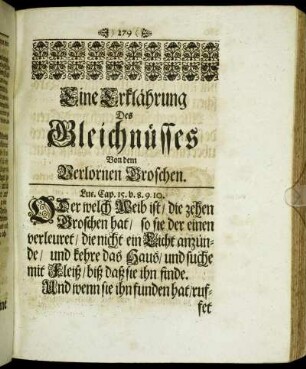 279
Eine Erklährung
Des
Gleichnüsses
Von dem
Verlornen Groschen.
Luc. Cap. 15. v. 8. 9. 10.
ODer welch Weib ist / die zehen
Groschen hat / so sie der einen
verleuret / die nicht ein Liecht anzün-
de / und kehre das Haus / und suche
mit Fleiß / biß daß sie ihn finde.
Und wenn sie ihn funden hat / ruf-
fet